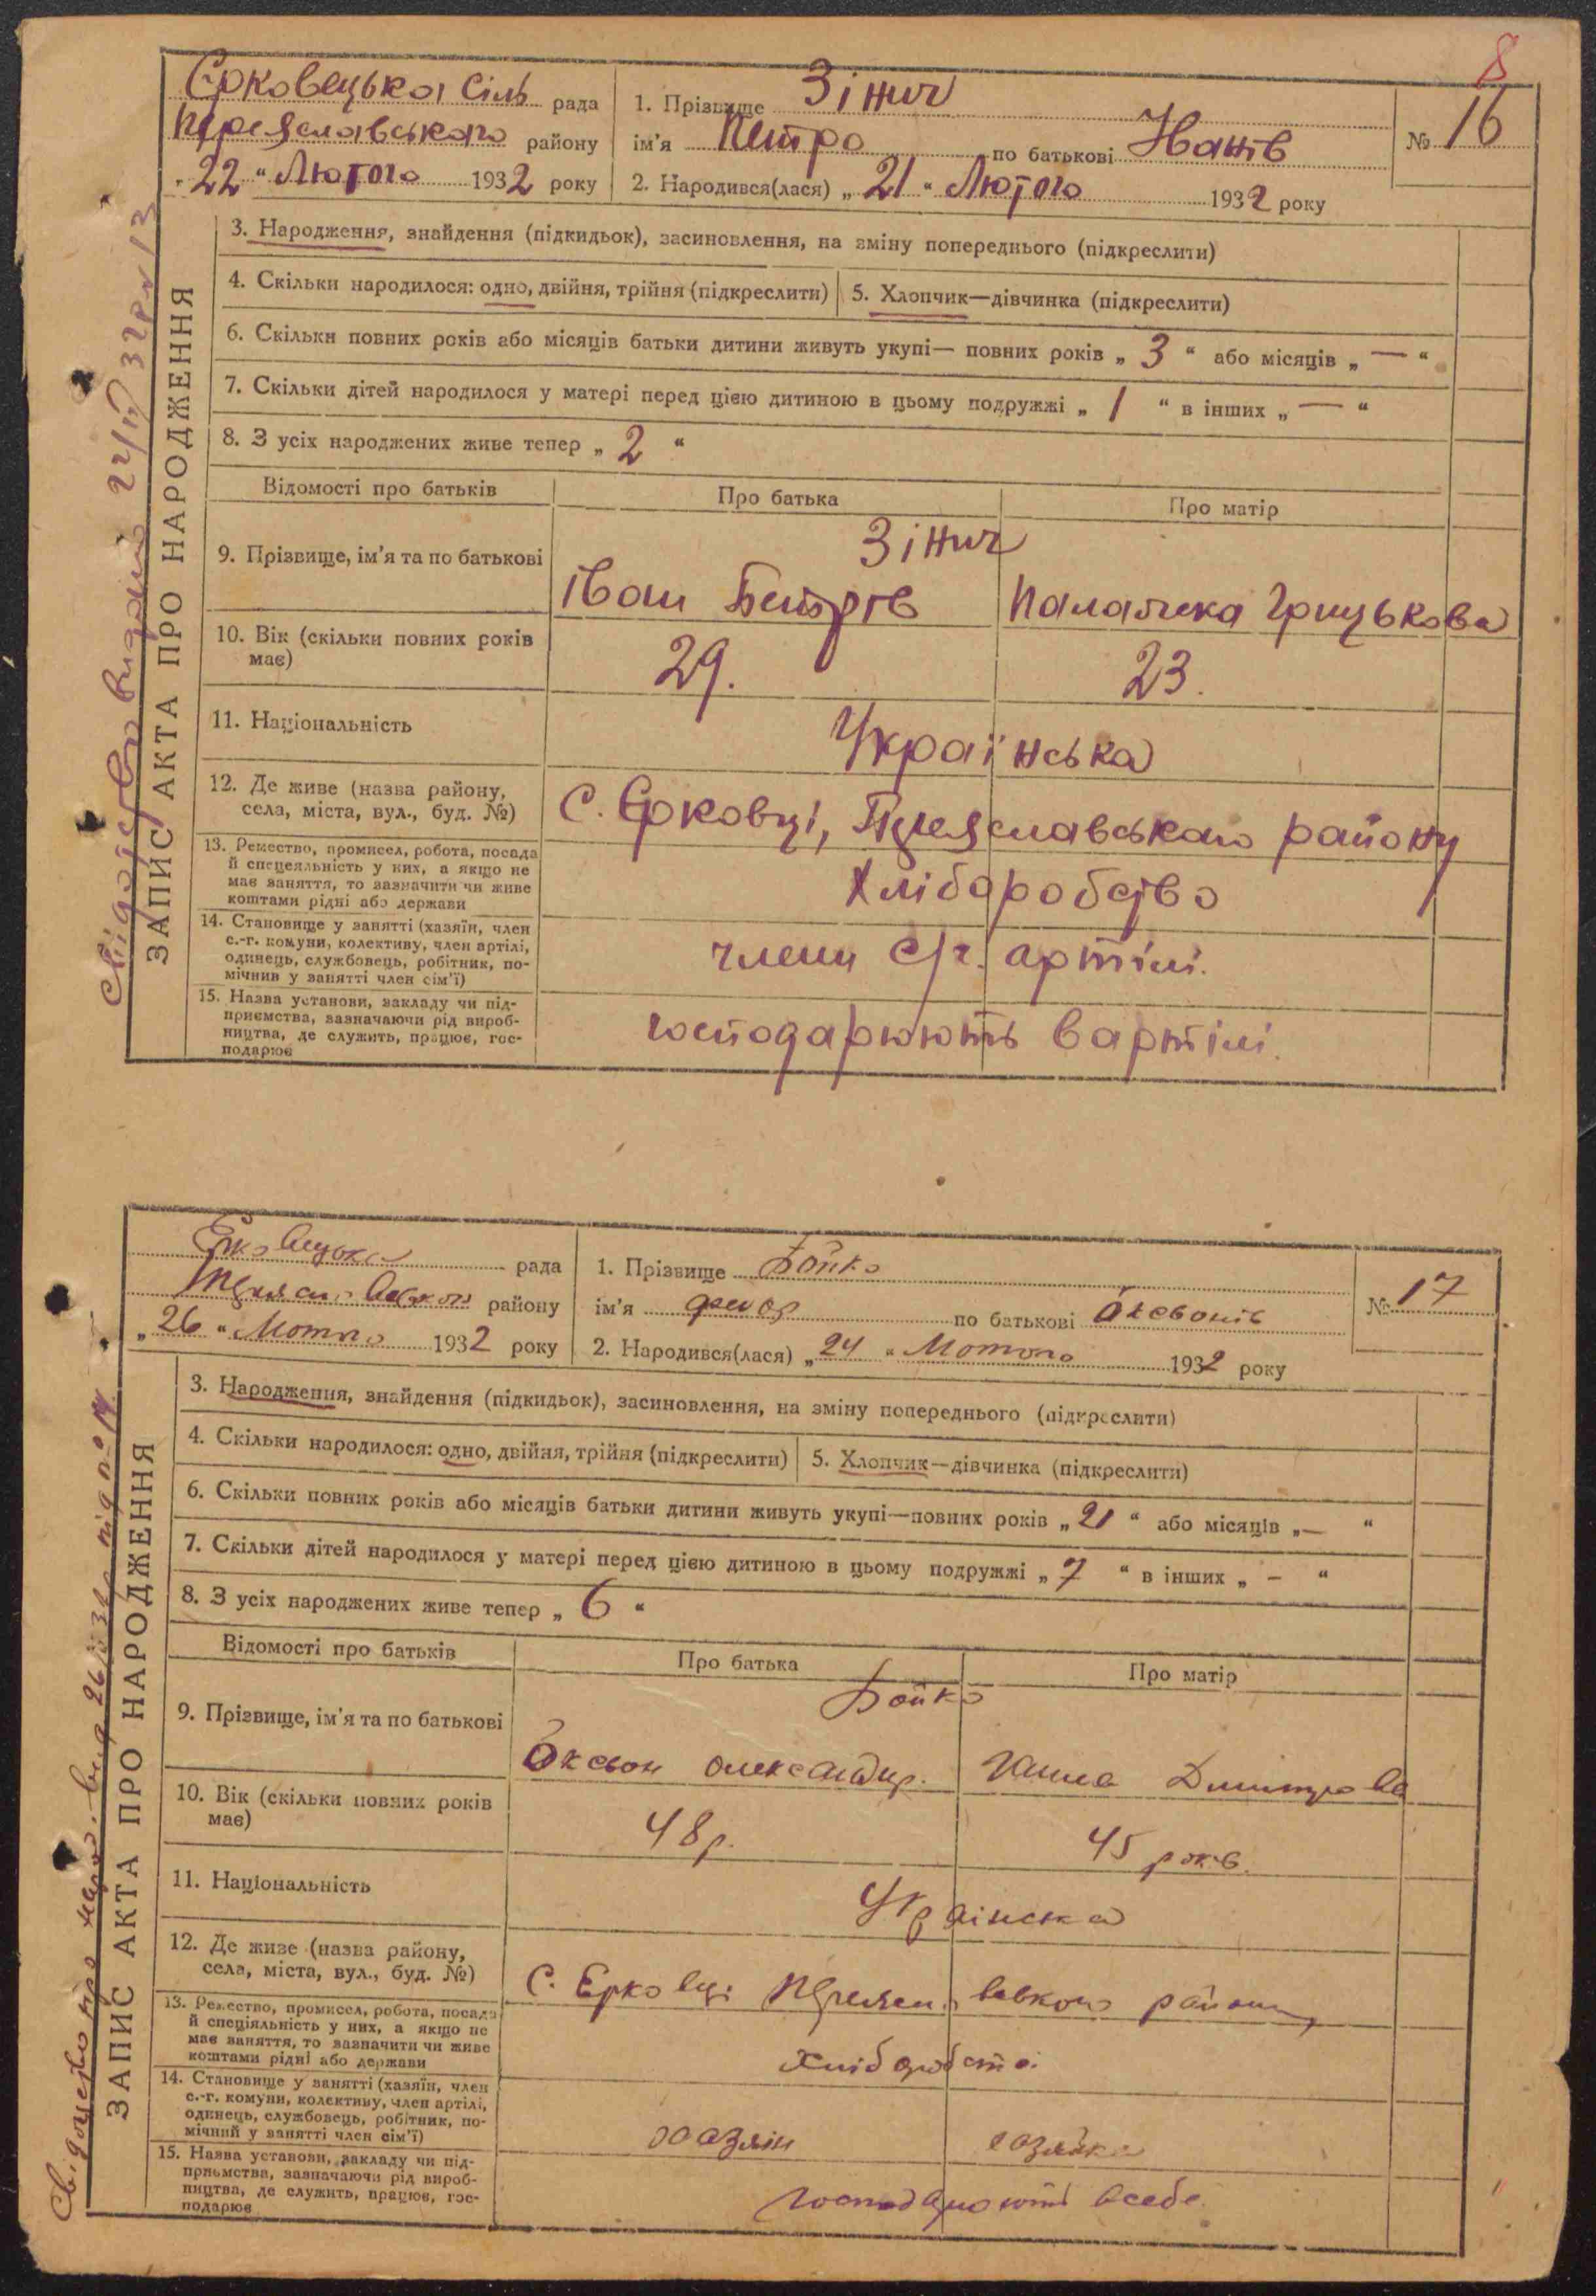 8
Єрковецька сіль рада
Переяславського району
„22“ Лютого 1932 року
1. Прізвище Зінич
ім'я Петро по батькові Іванів
2. Народився(лася) „21“ Лютого 1932 року
№ 16
ЗАПИС АКТА ПРО НАРОДЖЕННЯ
3. Народження, знайдення (підкидьок), засиновлення, на зміну попереднього (підкреслити)
4. Скільки народилося: одно, двійня, трійня (підкреслити)
5. Хлопчик—дівчинка (підкреслити)
6. Скільки повних років або місяців батьки дитини живуть укупі— повних років „ 3 “ або місяців „ — “
7. Скільки дітей народилося у матері перед цією дитиною в цьому подружжі „ 1 “ в інших „ — “
8. З усіх народжених живе тепер „ 2 “
Відомості про батьків
Про батька
Про матір
9. Прізвище, ім'я та по батькові
Зінич
Іван Петрів
Палажка Грицькова
10. Вік (скільки повних років
має)
29.
23.
11. Національність
Українська
12. Де живе (назва району,
села, міста, вул., буд. №)
С. Єрковці, Переяславського району
13. Ремество, промисел, робота, посада
й спецеяльність у них, а якщо не
має заняття, то зазначити чи живе
коштами рідні або держави
Хліборобство
14. Становище у занятті (хазяїн, член
с.-г. комуни, колективу, член артілі,
одинець, службовець, робітник, по-
мічнив у занятті член сім'ї)
члени с/г. артілі.
15. Назва установи, закладу чи під-
приємства, зазначаючи рід вироб-
ництва, де служить, працює, гос-
подарює
господарюють в артілі.
Свідоцтво видано
Єрковецька рада
району
„26“ Лютого 1932 року
1. Прізвище Бойко
ім'я Федор по батькові Оксвонів
2. Народився(лася) „24“ Лютого 1932 року
№ 17
ЗАПИС АКТА ПРО НАРОДЖЕННЯ
3. Народження, знайдення (підкидьок), засиновлення, на зміну попереднього (підкреслити)
4. Скільки народилося: одно, двійня, трійня (підкреслити)
5. Хлопчик—дівчинка (підкреслити)
6. Скільки повних років або місяців батьки дитини живуть укупі—повних років „ 21 “ або місяців „ — “
7. Скільки дітей народилося у матері перед цією дитиною в цьому подружжі „ 7 “ в інших „ - “
8. З усіх народжених живе тепер „ 6 “
Відомості про батьків
Про батька
Про матір
9. Прізвище, ім'я та по батькові
Бойко
Оксвон Олександр.
Ганна Дмитрова
10. Вік (скільки повних років
має)
48 р.
45 років.
11. Національність
Українска
12. Де живе (назва району,
села, міста, вул., буд. №)
С. Ерковці району
13. Ремество, промисел, робота, посада
й спеціяльність у них, а якщо не
має заняття, то зазначити чи живе
коштами рідні або держави
14. Становище у занятті (хазяїн, член
с.-г. комуни, колективу, член артілі,
одинець, службовець, робітник, по-
мічний у занятті член сім'ї)
хазяїн
хазяйка
15. Назва установи, закладу чи під-
приємства, зазначаючи рід вироб-
ництва, де служить, працює, гос-
подарює
господарюють в себе.
Свідоцтво про народ.